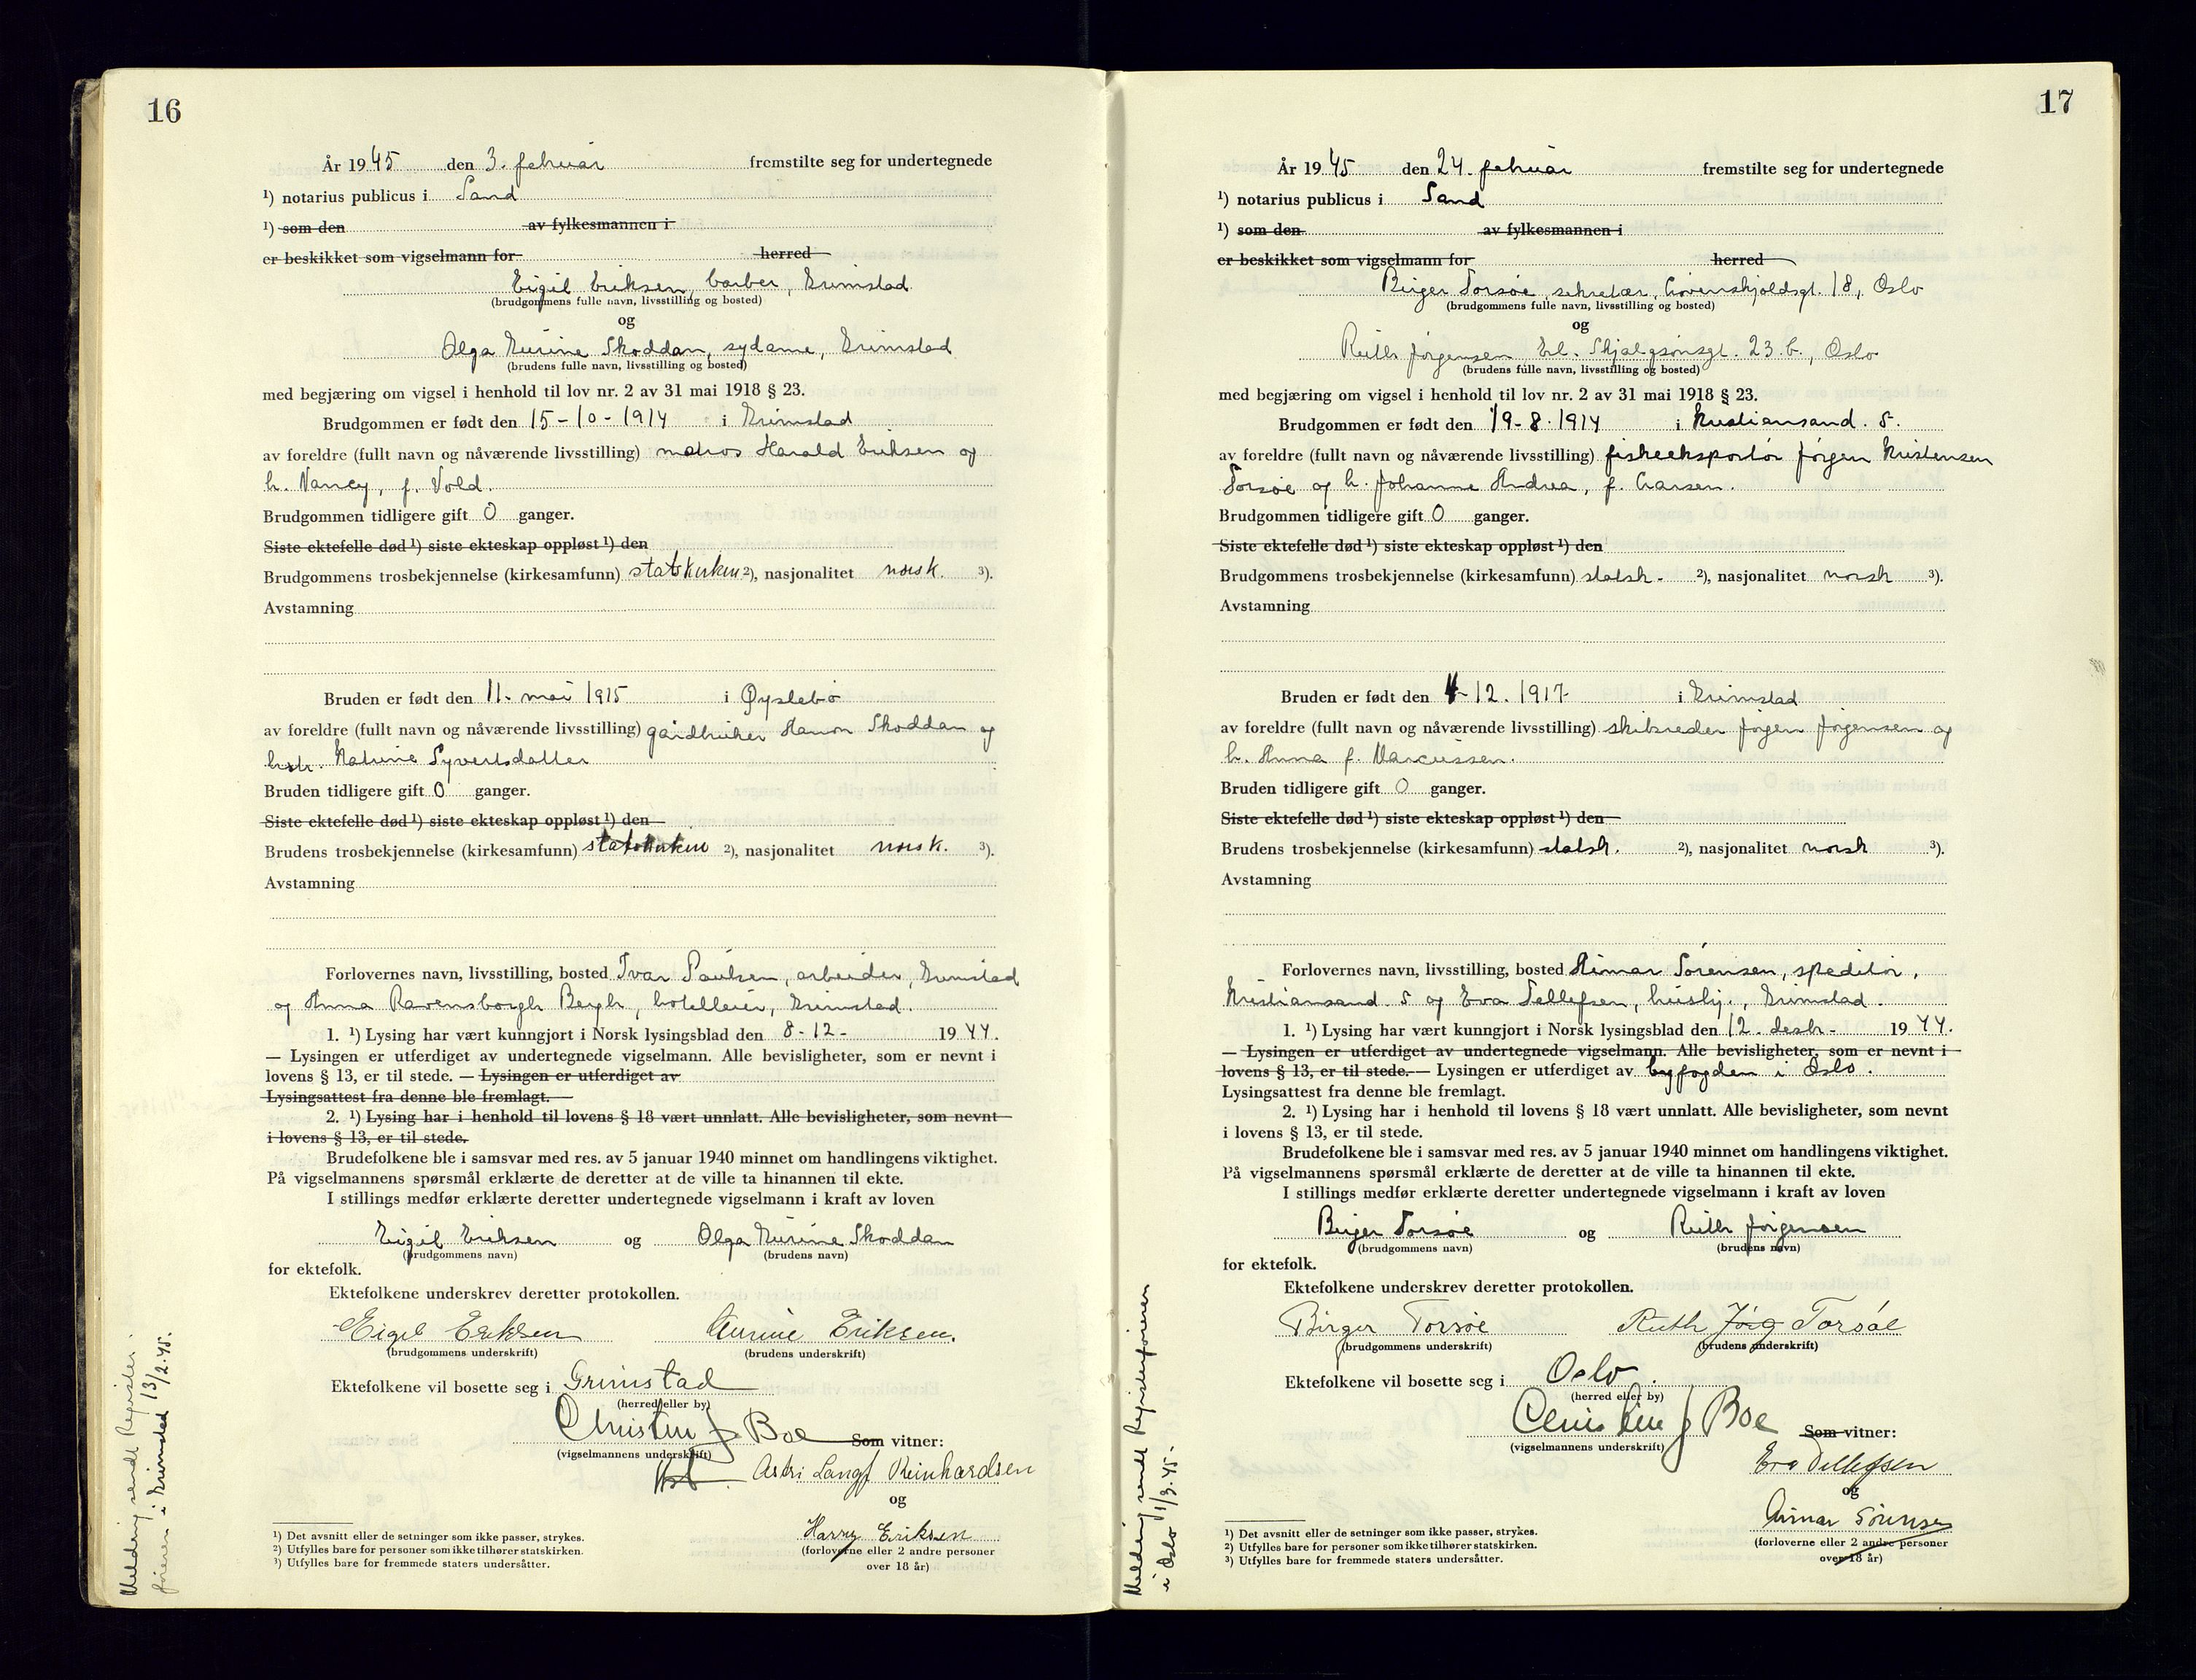 16
År 1945 den 3. februar fremstilte seg for undertegnede
¹) notarius publicus i Sand
¹) som den av fylkesmannen i
er beskikket som vigselmann for herred
Eigil Eriksen, barber, Grimstad
(brudgommens fulle navn, livsstilling og bosted)
og
Olga Gurine Skoddan, sydame, Grimstad
(brudens fulle navn, livsstilling og bosted)
med begjæring om vigsel i henhold til lov nr. 2 av 31 mai 1918 § 23.
Brudgommen er født den 15-10-1914 i Grimstad
av foreldre (fullt navn og nåværende livsstilling) matros Harald Eriksen og
h. Nancy, f. Vold.
Brudgommen tidligere gift 0 ganger.
Siste ektefelle død ¹) siste ekteskap oppløst ¹) den
Brudgommens trosbekjennelse (kirkesamfunn) statskirken ²), nasjonalitet norsk. ³).
Avstamning
Bruden er født den 11. mai 1915 i Øyslebø
av foreldre (fullt navn og nåværende livsstilling) gårdbruker Hanon Skoddan og
hustr. Katrine Syvertsdatter
Bruden tidligere gift 0 ganger.
Siste ektefelle død ¹) siste ekteskap oppløst ¹) den
Brudens trosbekjennelse (kirkesamfunn) statskirken ²), nasjonalitet norsk. ³).
Avstamning
Forlovernes navn, livsstilling, bosted Ivar Paulsen, arbeider, Grimstad
og Anna Ravensborgh Bergh, hotelleier, Grimstad.
1. ¹) Lysing har vært kunngjort i Norsk lysingsblad den 8-12- 1944.
— Lysingen er utferdiget av undertegnede vigselmann. Alle bevisligheter, som er nevnt i
lovens § 13, er til stede. — Lysingen er utferdiget av
Lysingsattest fra denne ble fremlagt. —
2. ¹) Lysing har i henhold til lovens § 18 vært unnlatt. Alle bevisligheter, som nevnt
i lovens § 13, er til stede.
Brudefolkene ble i samsvar med res. av 5 januar 1940 minnet om handlingens viktighet.
På vigselmannens spørsmål erklærte de deretter at de ville ta hinannen til ekte.
I stillings medfør erklærte deretter undertegnede vigselmann i kraft av loven
Eigil Eriksen og Olga Gurine Skoddan
(brudgommens navn) (brudens navn)
for ektefolk.
Ektefolkene underskrev deretter protokollen.
Eigil Eriksen Gurine Eriksen.
(brudgommens underskrift) (brudens underskrift)
Ektefolkene vil bosette seg i Grimstad
(herred eller by)
Christen J Boe Som vitner:
(vigselmannens underskrift)
Astri Langf Reinhardsen
og
Harry Eriksen
(forloverne eller 2 andre personer
over 18 år)
¹) Det avsnitt eller de setninger som ikke passer, strykes.
²) Utfylles bare for personer som ikke tilhører statskirken.
³) Utfylles bare for fremmede staters undersåtter.
Melding sendt Register-
føreren i Grimstad 13/2.45.
17
År 1945 den 24. februar fremstilte seg for undertegnede
¹) notarius publicus i Sand
¹) som den av fylkesmannen i
er beskikket som vigselmann for herred
Birger Torsøe, sekretær, Løvenskjoldsgt. 18, Oslo
(brudgommens fulle navn, livsstilling og bosted)
og
Ruth Jørgensen Erl. Skjalgsønsgt. 23.b., Oslo
(brudens fulle navn, livsstilling og bosted)
med begjæring om vigsel i henhold til lov nr. 2 av 31 mai 1918 § 23.
Brudgommen er født den 19-8.1914 i Kristiansand. S.
av foreldre (fullt navn og nåværende livsstilling) fiskeeksportør Jørgen Kristensen
Torsøe og h. Johanne Andrea, f. Larsen.
Brudgommen tidligere gift 0 ganger.
Siste ektefelle død ¹) siste ekteskap oppløst ¹) den
Brudgommens trosbekjennelse (kirkesamfunn) statsk. ²), nasjonalitet norsk ³).
Avstamning
Bruden er født den 4-12.1917 i Grimstad
av foreldre (fullt navn og nåværende livsstilling) skibsreder Jørgen Jørgensen og
h. Anna f. Marcussen.
Bruden tidligere gift 0 ganger.
Siste ektefelle død ¹) siste ekteskap oppløst ¹) den
Brudens trosbekjennelse (kirkesamfunn) statsk. ²), nasjonalitet norsk ³).
Avstamning
Forlovernes navn, livsstilling, bosted Aimar Sørensen, speditør,
Kristiansand. S og Eva Tellefsen, hushj., Grimstad.
1. ¹) Lysing har vært kunngjort i Norsk lysingsblad den 12. desbr- 1944.
— Lysingen er utferdiget av undertegnede vigselmann. Alle bevisligheter, som er nevnt i
lovens § 13, er til stede. — Lysingen er utferdiget av byfogden i Oslo.
Lysingsattest fra denne ble fremlagt.
2. ¹) Lysing har i henhold til lovens § 18 vært unnlatt. Alle bevisligheter, som nevnt
i lovens § 13, er til stede.
Brudefolkene ble i samsvar med res. av 5 januar 1940 minnet om handlingens viktighet.
På vigselmannens spørsmål erklærte de deretter at de ville ta hinannen til ekte.
I stillings medfør erklærte deretter undertegnede vigselmann i kraft av loven
Birger Torsøe og Ruth Jørgensen
(brudgommens navn) (brudens navn)
for ektefolk.
Ektefolkene underskrev deretter protokollen.
Birger Torsøe Ruth Jørg Torsøe
(brudgommens underskrift) (brudens underskrift)
Ektefolkene vil bosette seg i Oslo.
(herred eller by)
Christen J Boe Som vitner:
(vigselmannens underskrift)
Eva Tellefsen
og
Aimar Sørensen
(forloverne eller 2 andre personer
over 18 år)
¹) Det avsnitt eller de setninger som ikke passer, strykes.
²) Utfylles bare for personer som ikke tilhører statskirken.
³) Utfylles bare for fremmede staters undersåtter.
Melding sendt Registerføreren
i Oslo 1/3.45.